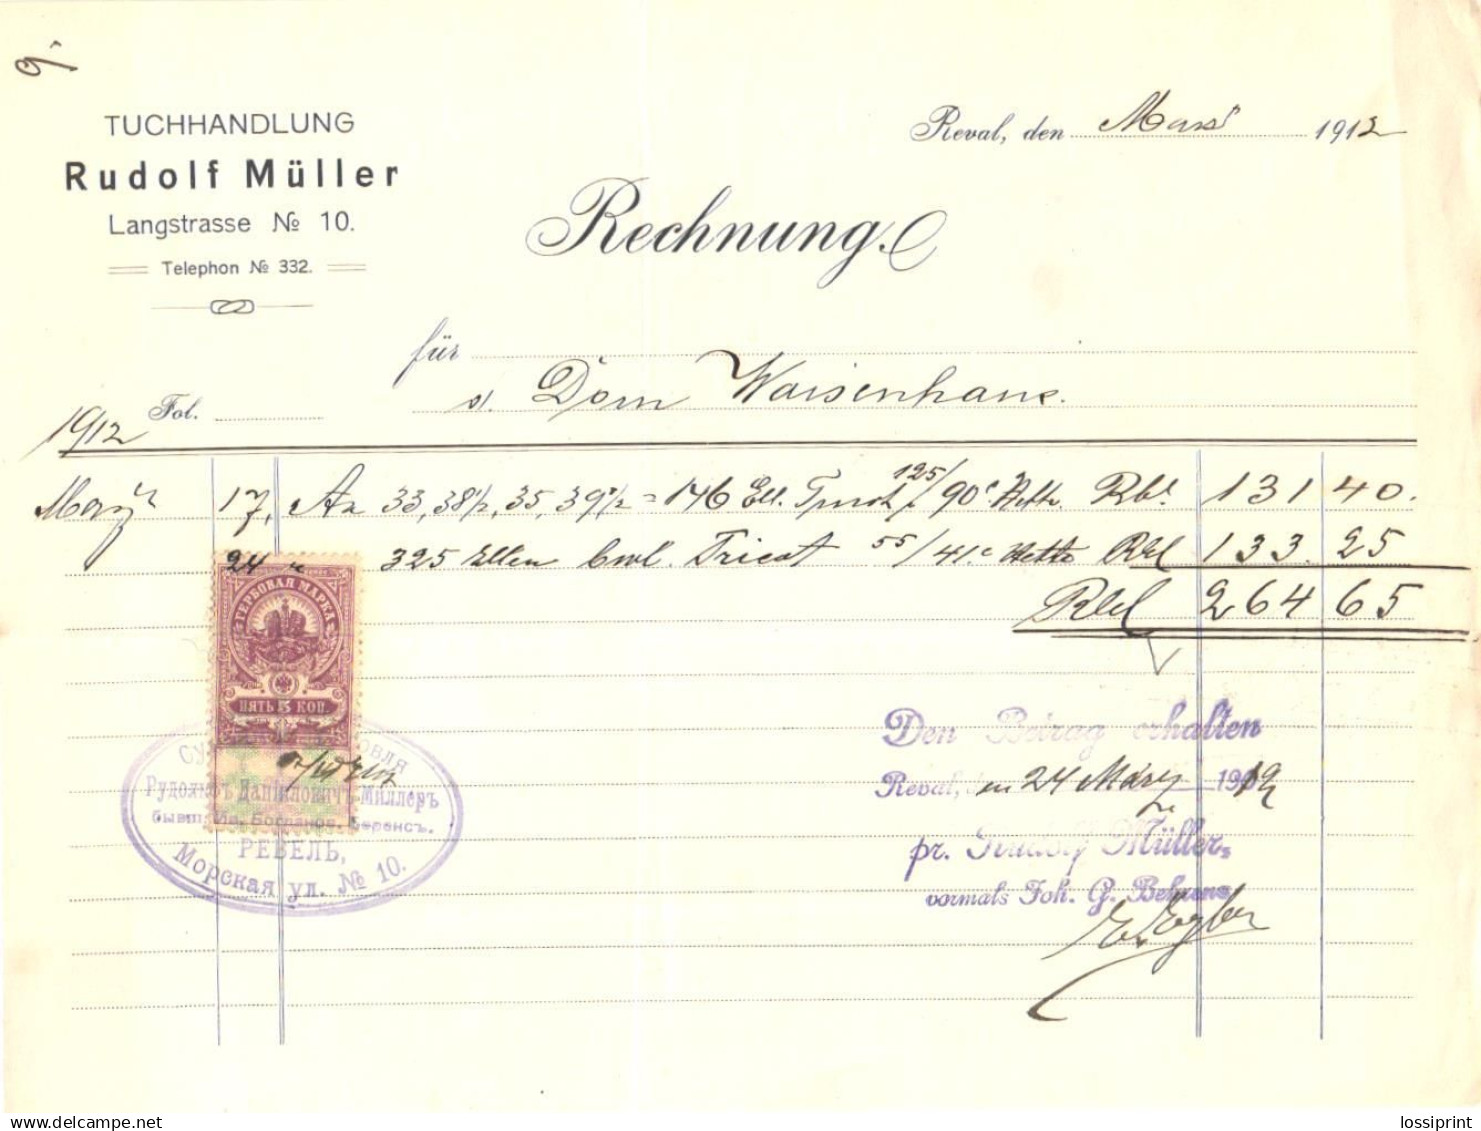 9.
TUCHHANDLUNG
Rudolf Müller
Langstrasse № 10.
Telephon № 332.
Reval, den März 1912
Rechnung
für
d. Dom Waisenhaus.
1912 Fol.
März 17. An 33, 38 1/2, 35, 39 1/2 = 146 Ell. 125/90 c Netto Rbl. 131 40.
24 " 325 Ellen bwl. Tricot 55/41 c Netto Rbl 133.25
Rbl 264 65
ГЕРБОВАЯ МАРКА
ПЯТЬ 5 КОП.
24/III 1912
Рудольфъ Даниловичъ Миллеръ
бывш. Ив. Богданов. Беренсъ.
РЕВЕЛЬ,
Морская ул. № 10.
Den Betrag erhalten
Reval, den 24 März 1912
pr. Rudolf Müller,
vormals Joh. G. Behrens
lossiprint